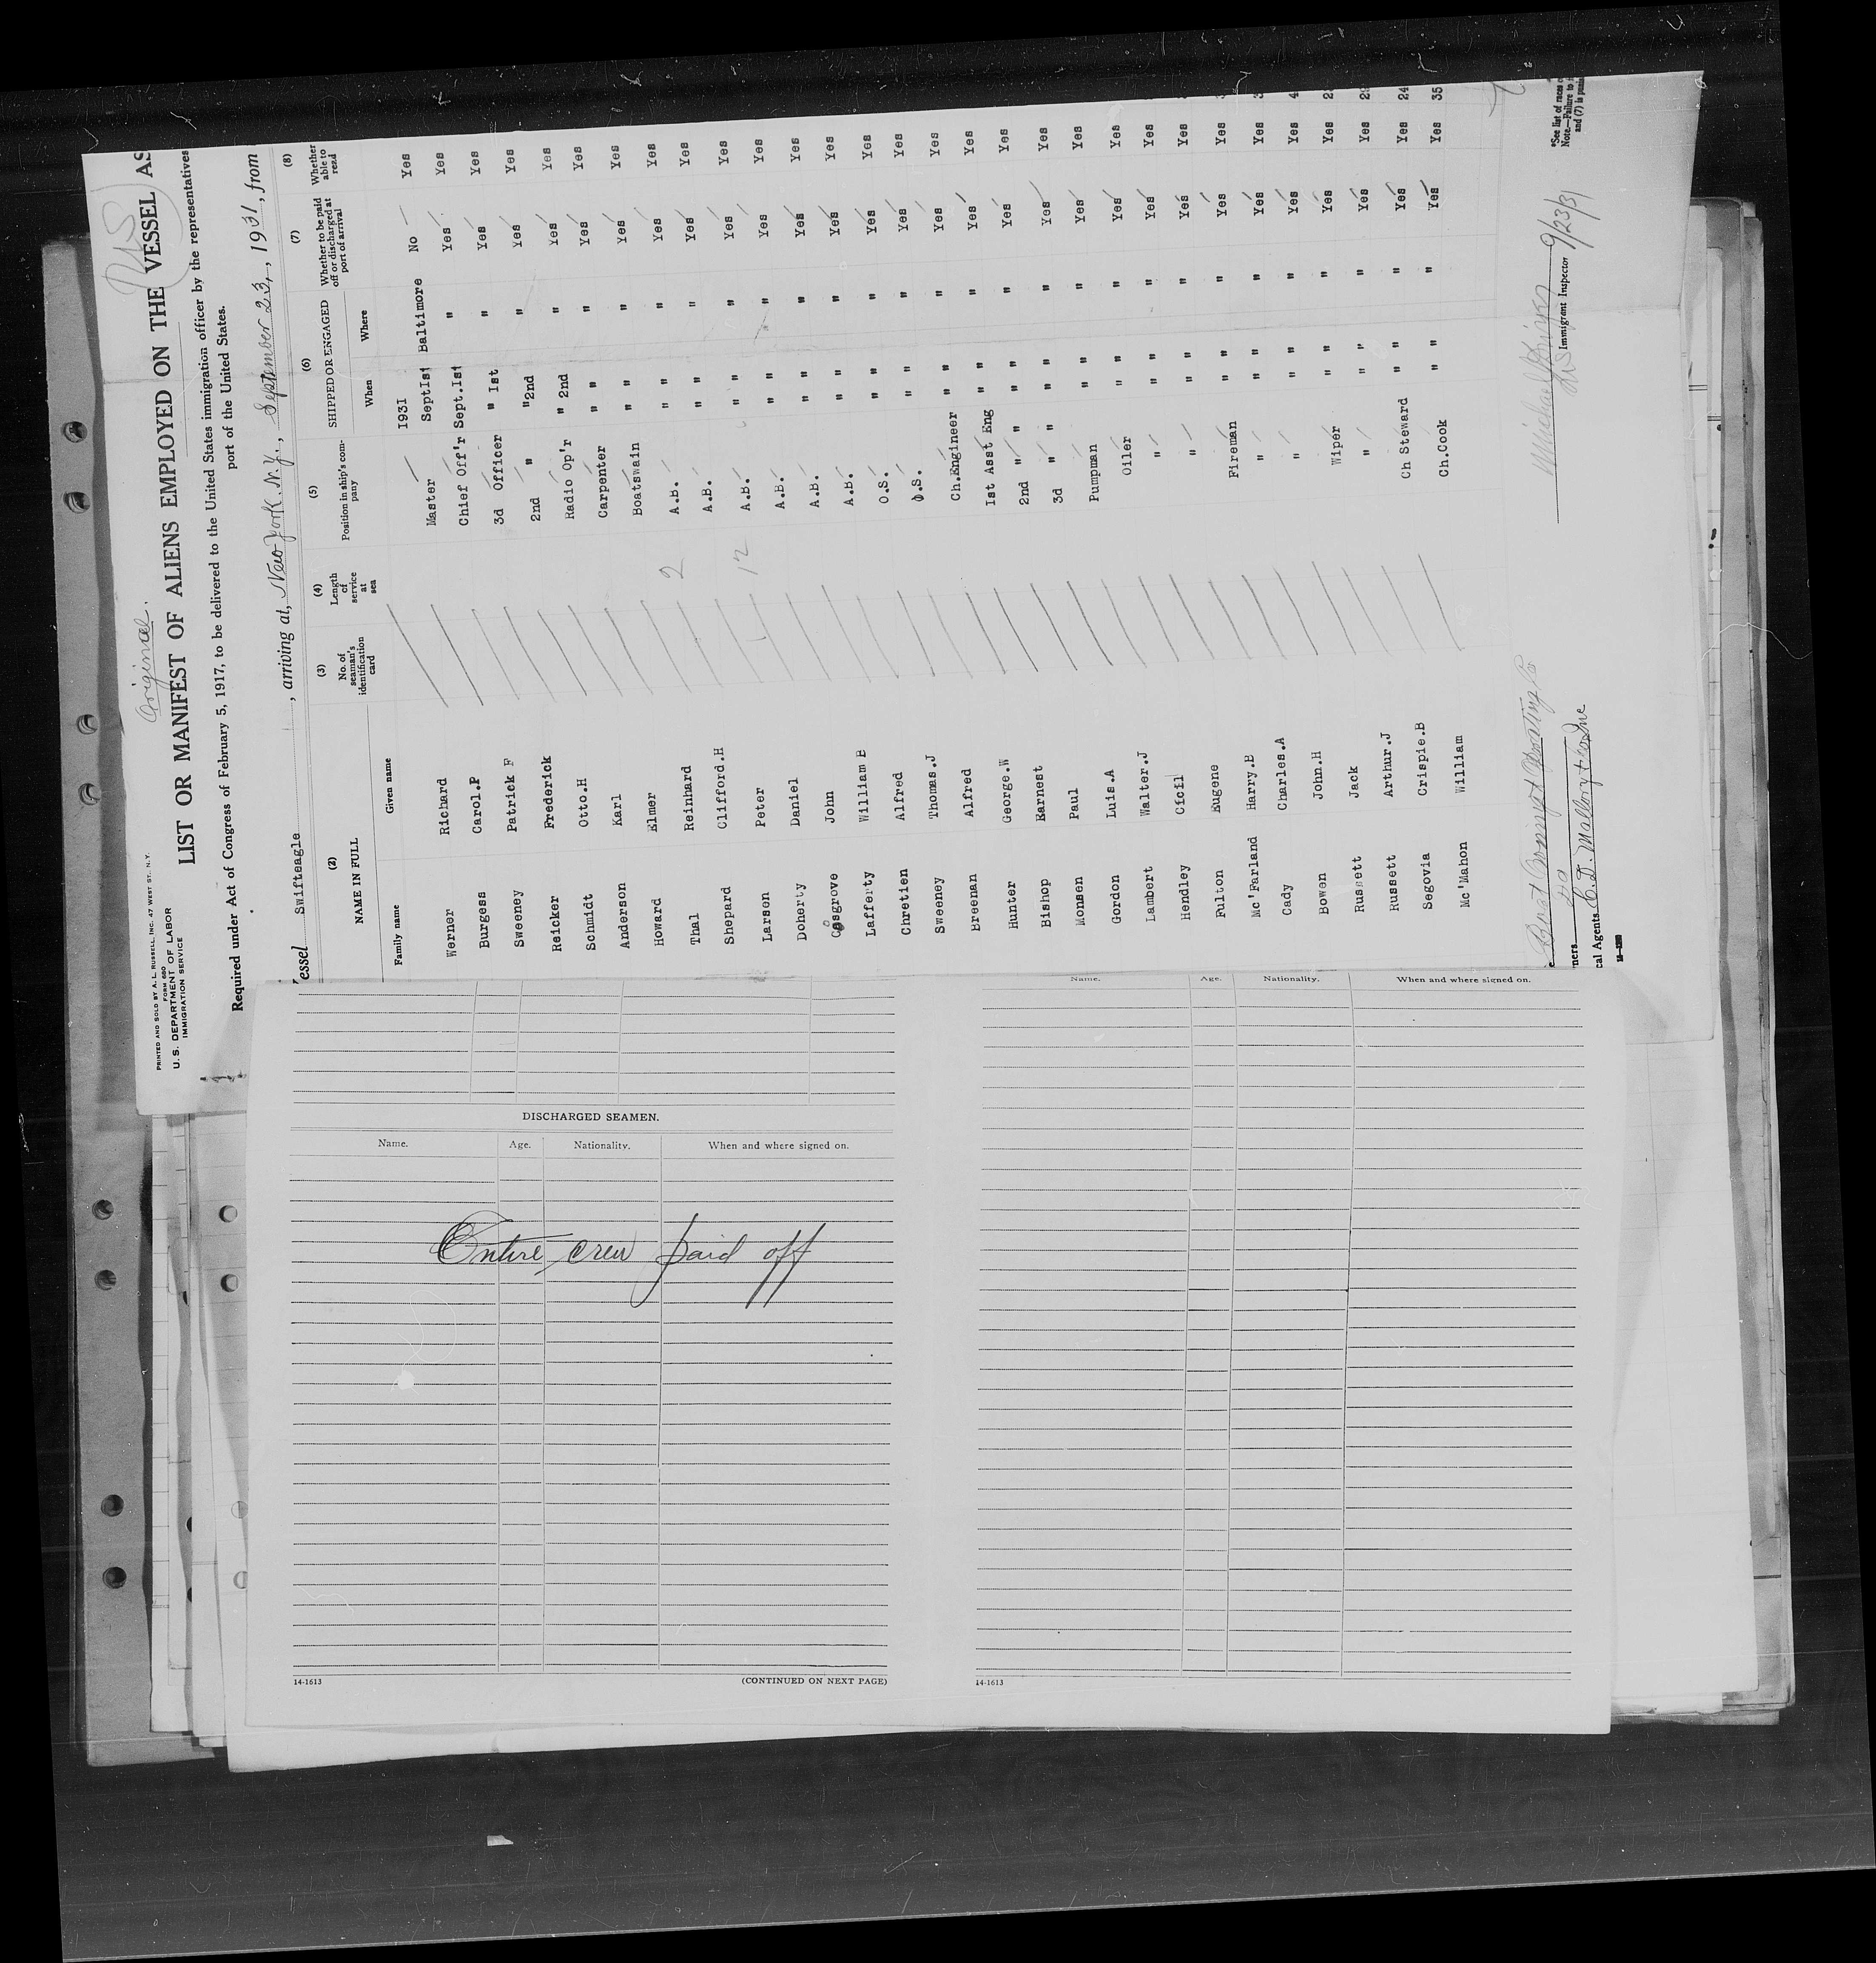 Original.
PRINTED AND SOLD BY A. L. RUSSELL, INC. 47 WEST ST., N.Y.
FORM 680
U. S. DEPARTMENT OF LABOR
IMMIGRATION SERVICE
LIST OR MANIFEST OF ALIENS EMPLOYED ON THE VESSEL AS
Required under Act of Congress of February 5, 1917, to be delivered to the United States immigration officer by the representatives
port of the United States.
essel Swifteagle, arriving at, New York. N.Y., September 23, 1931, from
(2) (3) (4) (5) (6) (7) (8)
NAME IN FULL No. of seaman's identification card Length of service at sea Position in ship's company SHIPPED OR ENGAGED Whether to be paid off or discharged at port of arrival Whether able to read
Family name Given name When Where
1931
Werner Richard Master SeptIst Baltimore No Yes
Burgess Carol.P Chief Off'r Sept.Ist " Yes Yes
Sweeney Patrick F 3d Officer " Ist " Yes Yes
Reicker Frederick 2nd " "2nd " Yes Yes
Schmidt Otto.H Radio Op'r " 2nd " Yes Yes
Anderson Karl Carpenter " " " Yes Yes
Howard Elmer Boatswain " " " Yes Yes
Thal Reinhard A.B. " " " Yes Yes
Shepard Clifford.H A.B. " " " Yes Yes
Larsen Peter A.B. " " " Yes Yes
Doherty Daniel A.B. " " " Yes Yes
Cosgrove John A.B. " " " Yes Yes
Lafferty William B A.B. " " " Yes Yes
Chretien Alfred O.S. " " " Yes Yes
Sweeney Thomas.J O.S. " " " Yes Yes
Breenan Alfred Ch.Engineer " " " Yes Yes
Hunter George.W Ist Asst Eng " " " Yes Yes
Bishop Earnest 2nd " " " " Yes Yes
Monsen Paul 3d " " " " Yes Yes
Gordon Luis.A Pumpman " " " Yes Yes
Lambert Walter.J Oiler " " " Yes Yes
Hendley Cicil " " " " Yes Yes
Fulton Eugene " " " " Yes Yes
Mc'Farland Harry.B Fireman " " " Yes Yes
Cady Charles.A " " " " Yes Yes
Bowen John.H " " " " Yes Yes
Russett Jack Wiper " " " Yes Yes
Russett Arthur.J " " " " Yes Yes
Segovia Crispie.B Ch Steward " " " Yes Yes 24
Mc'Mahon William Ch.Cook " " " Yes Yes 35
2
12
ners
cal Agents C. D. Mallory & Co Inc
Immigrant Inspector 9/23/31
*See list of races
Note—Failure to
and (7) is
DISCHARGED SEAMEN.
Name. Age. Nationality. When and where signed on.
Entire crew paid off
14-1613 (CONTINUED ON NEXT PAGE)
Name. Age. Nationality. When and where signed on.
14-1613